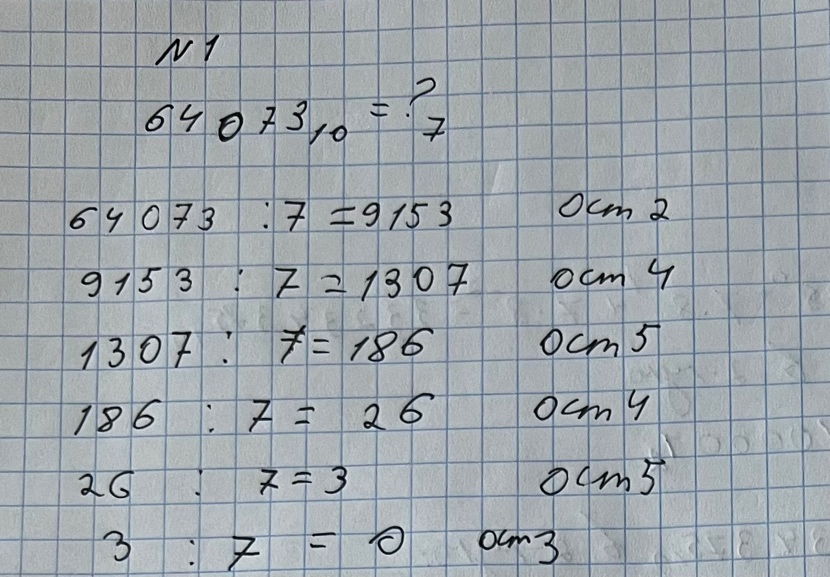 N 1
64073₁₀ = ?₇
64073 : 7 = 9153 ост 2
9153 : 7 = 1307 ост 4
1307 : 7 = 186 ост 5
186 : 7 = 26 ост 4
26 : 7 = 3 ост 5
3 : 7 = 0 ост 3